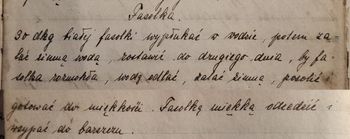 Fasolka.
30 dkg białej fasolki wypłukać w wodzie, potem za-
lać zimną wodą, zostawić do drugiego dnia, by fa-
solka rozmokła, wodę odlać, zalać zimną, posolić i
gotować do miękkości. Fasolkę miękką odcedzić i
wsypać do barszczu.